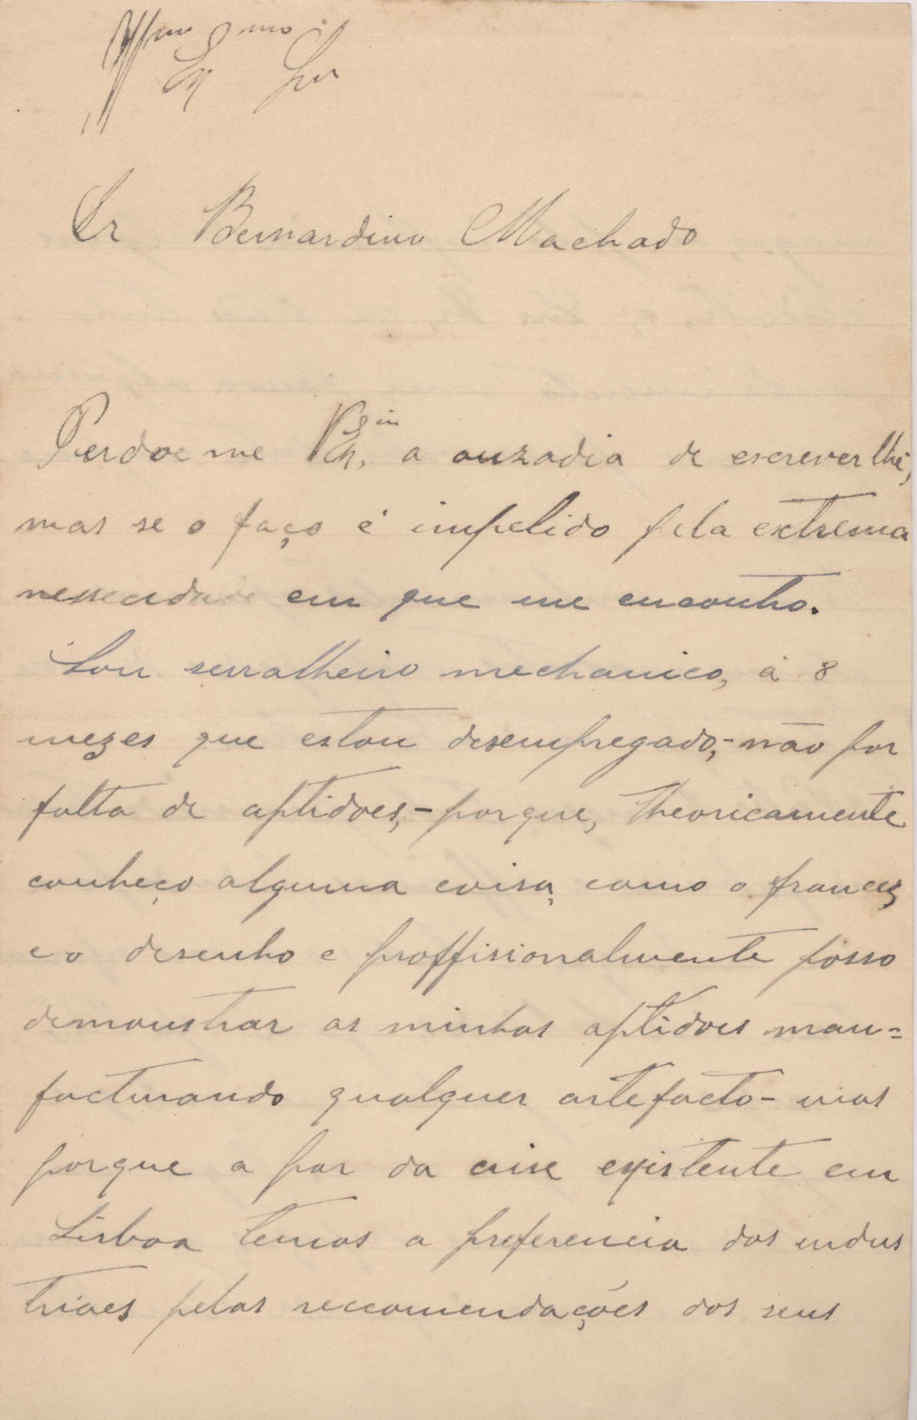 Illmo Exmo Snr
Dr Bernardino Machado
Perdoe me V. Ex.cia a ouzadia de escrever lhe,
mas se o faço é impelido pela extrema
nessecidade em que me encontro.
Sou serralheiro mechanico, á 8
mezes que estou desempregado;-não por
falta de aptidoes,-porque, theoricamente
conheço alguma coisa, como o francez
e o desenho e proffisionalmente posso
demonstrar as minhas aptidoes man=
facturando qualquer artefacto-mas
porque a par da crise existente em
Lisboa temos a preferencia dos indus
triaes pelas reccomendações dos seus